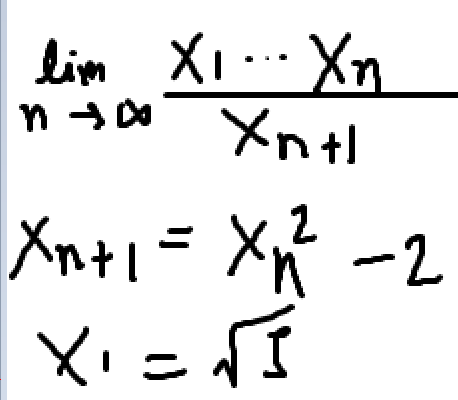 lim n → ∞ X1 ··· Xn / Xn+1
Xn+1 = Xn² - 2
X1 = √5